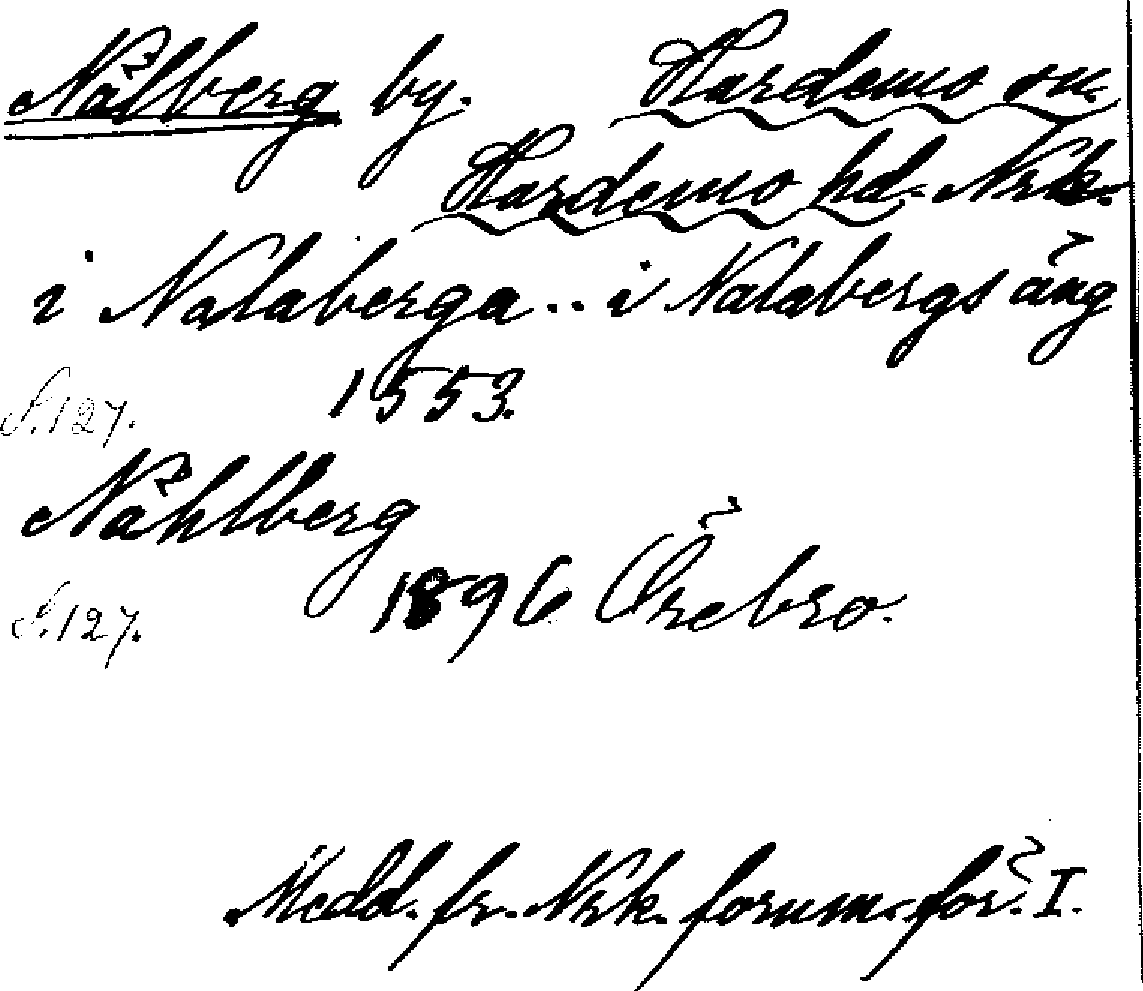 Nålberg by. Hardemo sn.
Hardemo hd. Nrk.
i Nalaberga .. i Nalabergs äng
S. 127. 1553.
Nåhlberg
S. 127. 1896 Örebro.
Medd. fr. Nrk. fornm. för. I.